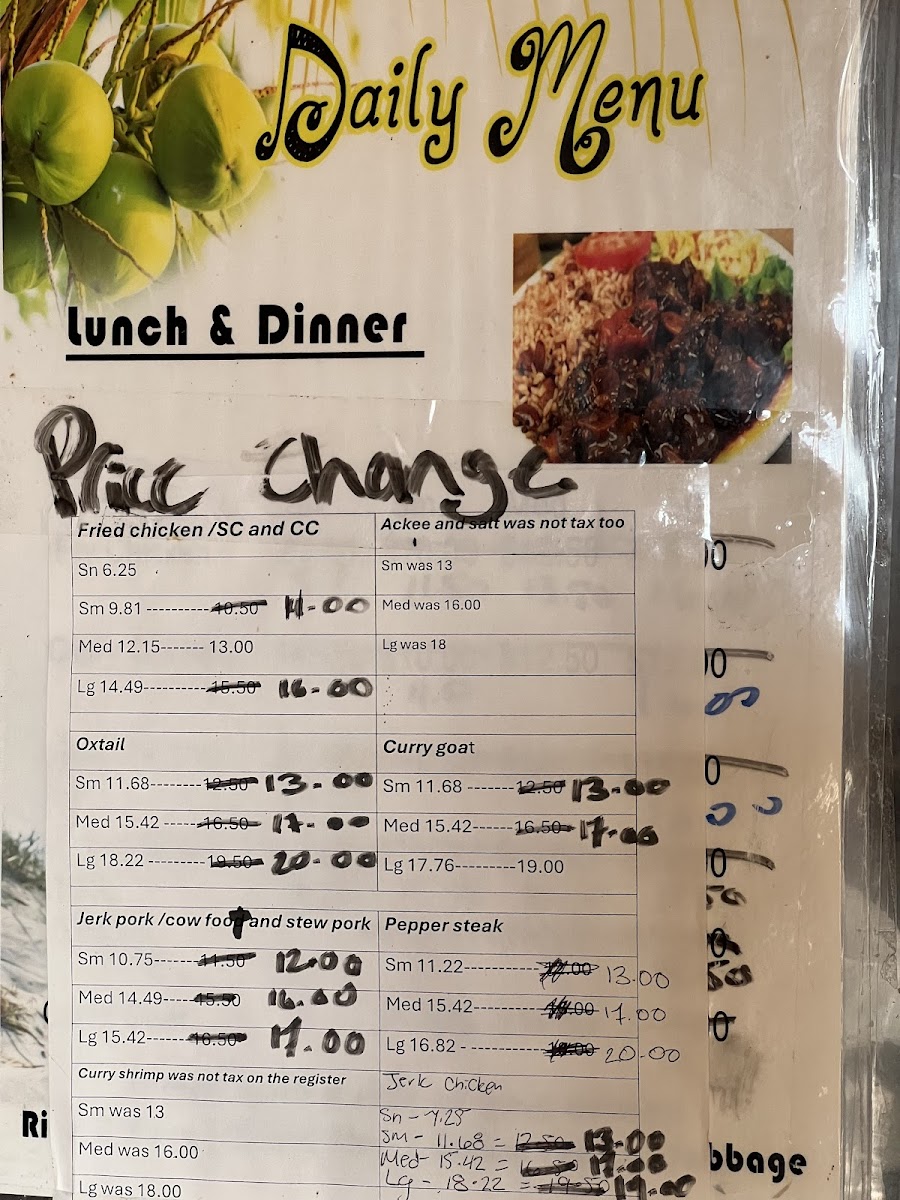 Daily Menu
Lunch & Dinner
Price Change
Fried chicken /SC and CC
Sn 6.25
Sm 9.81 ----------10.50 11-00
Med 12.15------- 13.00
Lg 14.49----------15.50 16-00
Ackee and salt was not tax too
Sm was 13
Med was 16.00
Lg was 18
Oxtail
Sm 11.68--------12.50 13-00
Med 15.42 ------16.50 17-00
Lg 18.22 ---------19.50 20-00
Curry goat
Sm 11.68 -------12.50 13-00
Med 15.42------16.50 17-00
Lg 17.76---------19.00
Jerk pork /cow foot and stew pork
Sm 10.75-------11.50 12.00
Med 14.49----15.50 16.00
Lg 15.42-------16.50 17.00
Pepper steak
Sm 11.22------------ 13.00
Med 15.42------------ 17.00
Lg 16.82 ------------- 20-00
Curry shrimp was not tax on the register
Sm was 13
Med was 16.00
Lg was 18.00
Jerk Chicken
Sn - 7.25
Sm - 11.68 = 12.50 13-00
Med- 15.42 = 16.50 17-00
Lg - 18.22 = 19.50
Ri
bbage